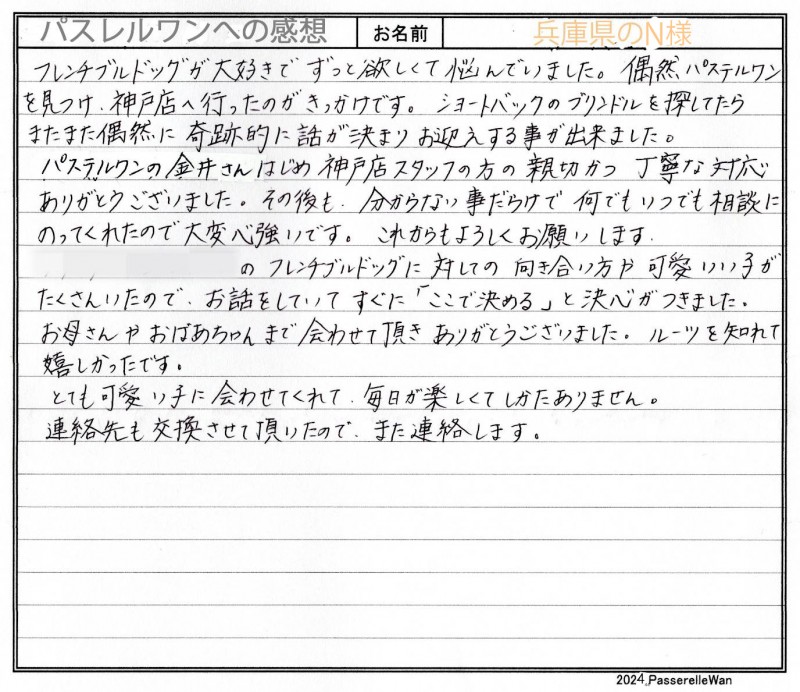 パスレルワンへの感想 お名前 兵庫県のN様
フレンチブルドッグが大好きで ずっと欲しくて悩んでいました。偶然パステルワン
を見つけ、神戸店へ行ったのがきっかけです。ショートバックのブリンドルを探してたら
またまた偶然に奇跡的に話が決まりお迎えする事が出来ました。
パステルワンの金井さんはじめ神戸店スタッフの方の親切かつ丁寧な対応
ありがとうございました。その後も、分からない事だらけで何でもいつでも相談に
のってくれたので大変心強いです。これからもよろしくお願いします.
のフレンチブルドッグに対しての向き合い方や可愛いい子が
たくさんいたので、お話をしていてすぐに「ここで決める」と決心がつきました。
お母さんやおばあちゃんまで会わせて頂きありがとうございました。ルーツを知れて
嬉しかったです。
とても可愛い子に会わせてくれて、毎日が楽しくてしかたありません。
連絡先も交換させて頂いたので、また連絡します。
2024.PasserelleWan